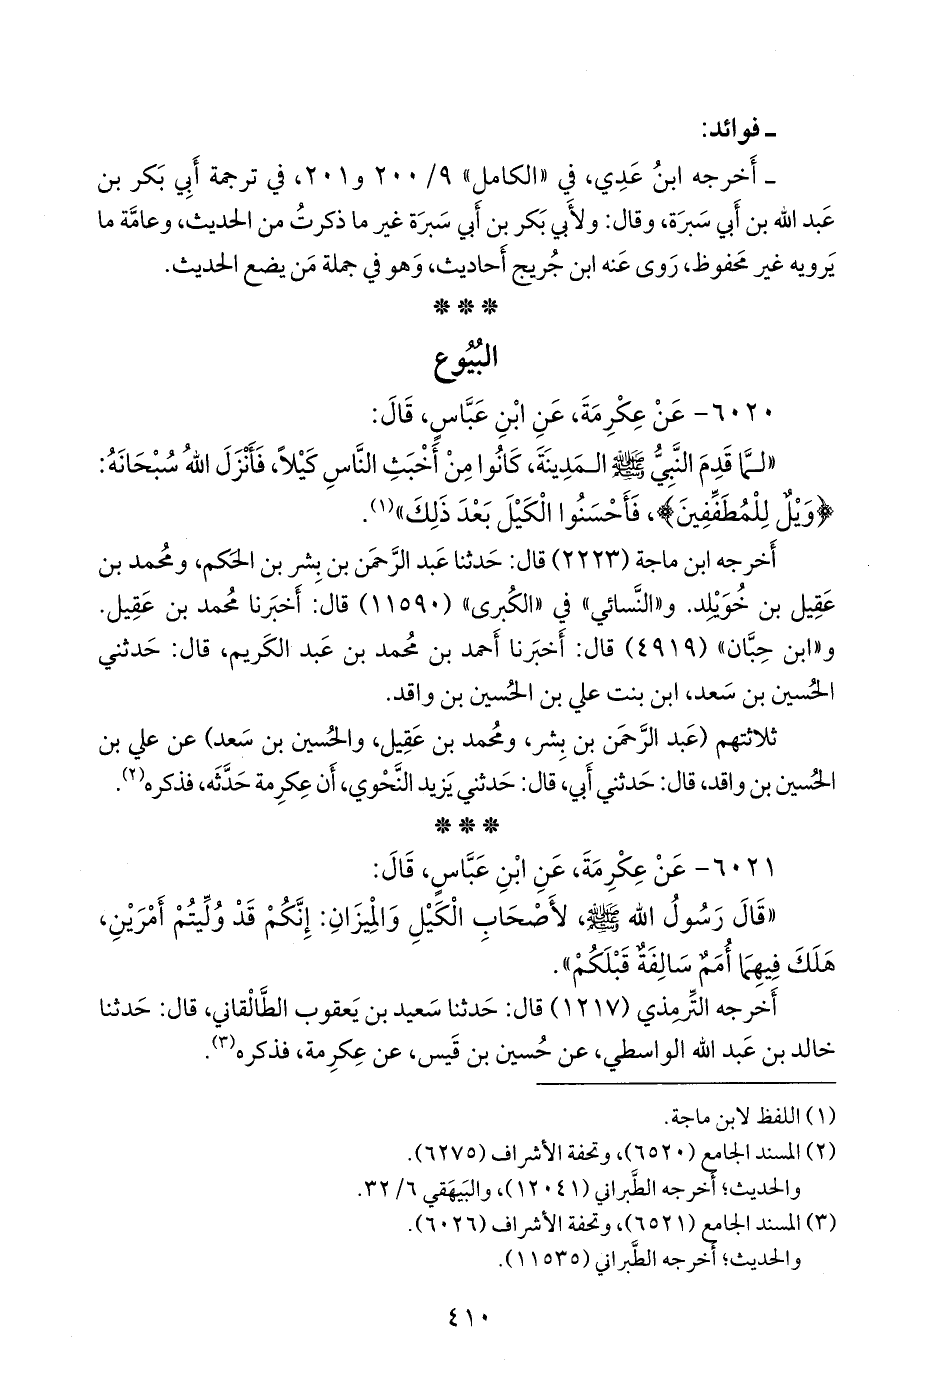 ـ فوائد:
ـ أَخرجه ابنُ عَدِي، في «الكامل» ٩/ ٢٠٠ و٢٠١، في ترجمة أَبي بَكر بن
عَبد الله بن أَبي سَبرَة، وقال: ولأَبي بكر بن أَبي سَبرَة غير ما ذكرتُ من الحديث، وعامَّة ما
يَرويه غير مَحفوظ، رَوى عَنه ابن جُريج أَحاديث، وَهو في جملة مَن يضع الحديث.
* * *
البُيُوع
٦٠٢٠- عَنْ عِكْرِمَةَ، عَنِ ابْنِ عَبَّاسٍ، قَالَ:
«لـمَّا قَدِمَ النَّبِيُّ ﷺ الـمَدِينَةَ، كَانُوا مِنْ أَخْبَثِ النَّاسِ كَيْلاً، فَأَنْزَلَ اللهُ سُبْحَانَهُ:
﴿وَيْلٌ لِلْمُطَفِّفِينَ﴾، فَأَحْسَنُوا الْكَيْلَ بَعْدَ ذَلِكَ»(١).
أَخرجه ابن ماجة (٢٢٢٣) قال: حَدثنا عَبد الرَّحمَن بن بِشر بن الحَكم، ومُحمد بن
عَقِيل بن خُوَيْلِد. و«النَّسائي» في «الكُبرى» (١١٥٩٠) قال: أَخبَرنا مُحمد بن عَقِيل.
و«ابن حِبَّان» (٤٩١٩) قال: أَخبَرنا أَحمد بن مُحمد بن عَبد الكريم، قال: حَدثني
الحُسين بن سَعد، ابن بنت علي بن الحُسين بن واقد.
ثلاثتهم (عَبد الرَّحمَن بن بِشر، ومُحمد بن عَقِيل، والحُسين بن سَعد) عن علي بن
الحُسين بن واقد، قال: حَدثني أَبي، قال: حَدثني يَزيد النَّحْوي، أَن عِكرِمة حَدَّثَه، فذكره(٢).
* * *
٦٠٢١- عَنْ عِكْرِمَةَ، عَنِ ابْنِ عَبَّاسٍ، قَالَ:
«قَالَ رَسُولُ اللهِ ﷺ، لأَصْحَابِ الْكَيْلِ وَالْمِيزَانِ: إِنَّكُمْ قَدْ وُلِّيتُمْ أَمْرَيْنِ،
هَلَكَ فِيهِمَا أُمَمٌ سَالِفَةٌ قَبْلَكُمْ».
أَخرجه التِّرمِذي (١٢١٧) قال: حَدثنا سَعيد بن يَعقوب الطَّالْقاني، قال: حَدثنا
خالد بن عَبد الله الواسطي، عن حُسين بن قَيس، عن عِكرِمة، فذكره(٣).
(١) اللفظ لابن ماجة.
(٢) المسند الجامع (٦٥٢٠)، وتحفة الأشراف (٦٢٧٥).
والحديث؛ أَخرجه الطَّبراني (١٢٠٤١)، والبَيهَقي ٦/ ٣٢.
(٣) المسند الجامع (٦٥٢١)، وتحفة الأشراف (٦٠٢٦).
والحديث؛ أَخرجه الطَّبراني (١١٥٣٥).
٤١٠